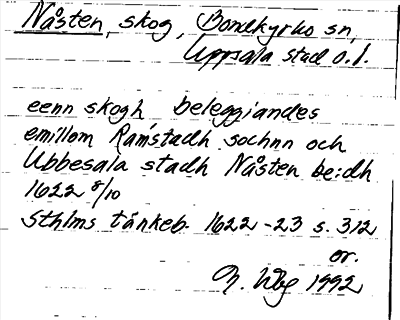 Nåsten, skog, Bondkyrko sn,
Uppsala stad o. l.
eenn skogh beleggiandes
emillom Ramstadh sochnn och
Ubbesala stadh Nåsten be:dh
1622 8/10
Sthlms tänkeb. 1622-23 s. 312
or.
1992